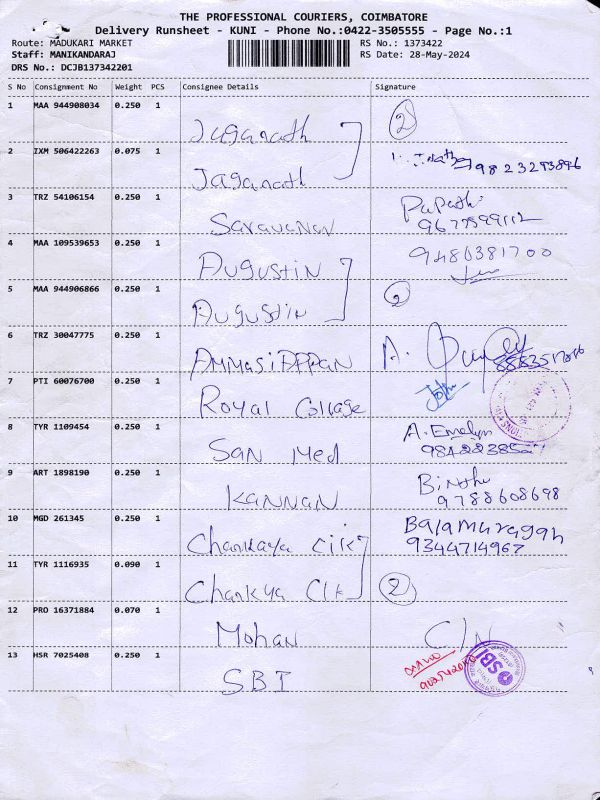 THE PROFESSIONAL COURIERS, COIMBATORE
Delivery Runsheet - KUNI - Phone No.:0422-3505555 - Page No.:1
Route: MADUKARI MARKET RS No.: 1373422
Staff: MANIKANDARAJ RS Date: 28-May-2024
DRS No.: DCJB137342201
S No Consignment No Weight PCS Consignee Details Signature
1 MAA 944908034 0.250 1 Jaganath 2
2 IXM 506422263 0.075 1 Jaganath
3 TRZ 54106154 0.250 1 Saravanan
4 MAA 109539653 0.250 1 Augustin 9486381700
5 MAA 944906866 0.250 1 Augustin 2
6 TRZ 30047775 0.250 1 Ammasiappan A.
7 PTI 60076700 0.250 1 Royal College John
8 TYR 1109454 0.250 1 San Med A. Emelyn
9 ART 1898190 0.250 1 Kannan Binthu
9788608698
10 MGD 261345 0.250 1 Chankaya Clk Balamurugan
9344714967
11 TYR 1116935 0.090 1 Chankya Clk 2
12 PRO 16371884 0.070 1 Mohan C/N
13 HSR 7025408 0.250 1 SBI SBI